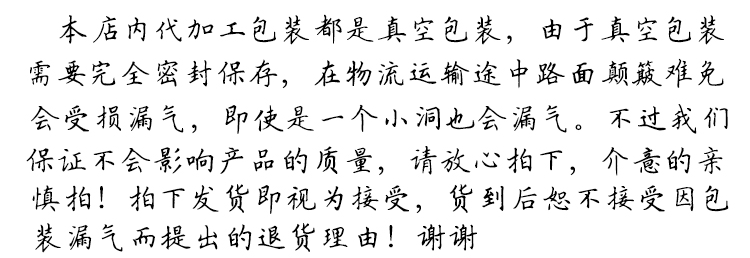 本店内代加工包装都是真空包装，由于真空包装
需要完全密封保存，在物流运输途中路面颠簸难免
会受损漏气，即使是一个小洞也会漏气。不过我们
保证不会影响产品的质量，请放心拍下，介意的亲
慎拍！拍下发货即视为接受，货到后恕不接受因包
装漏气而提出的退货理由！谢谢